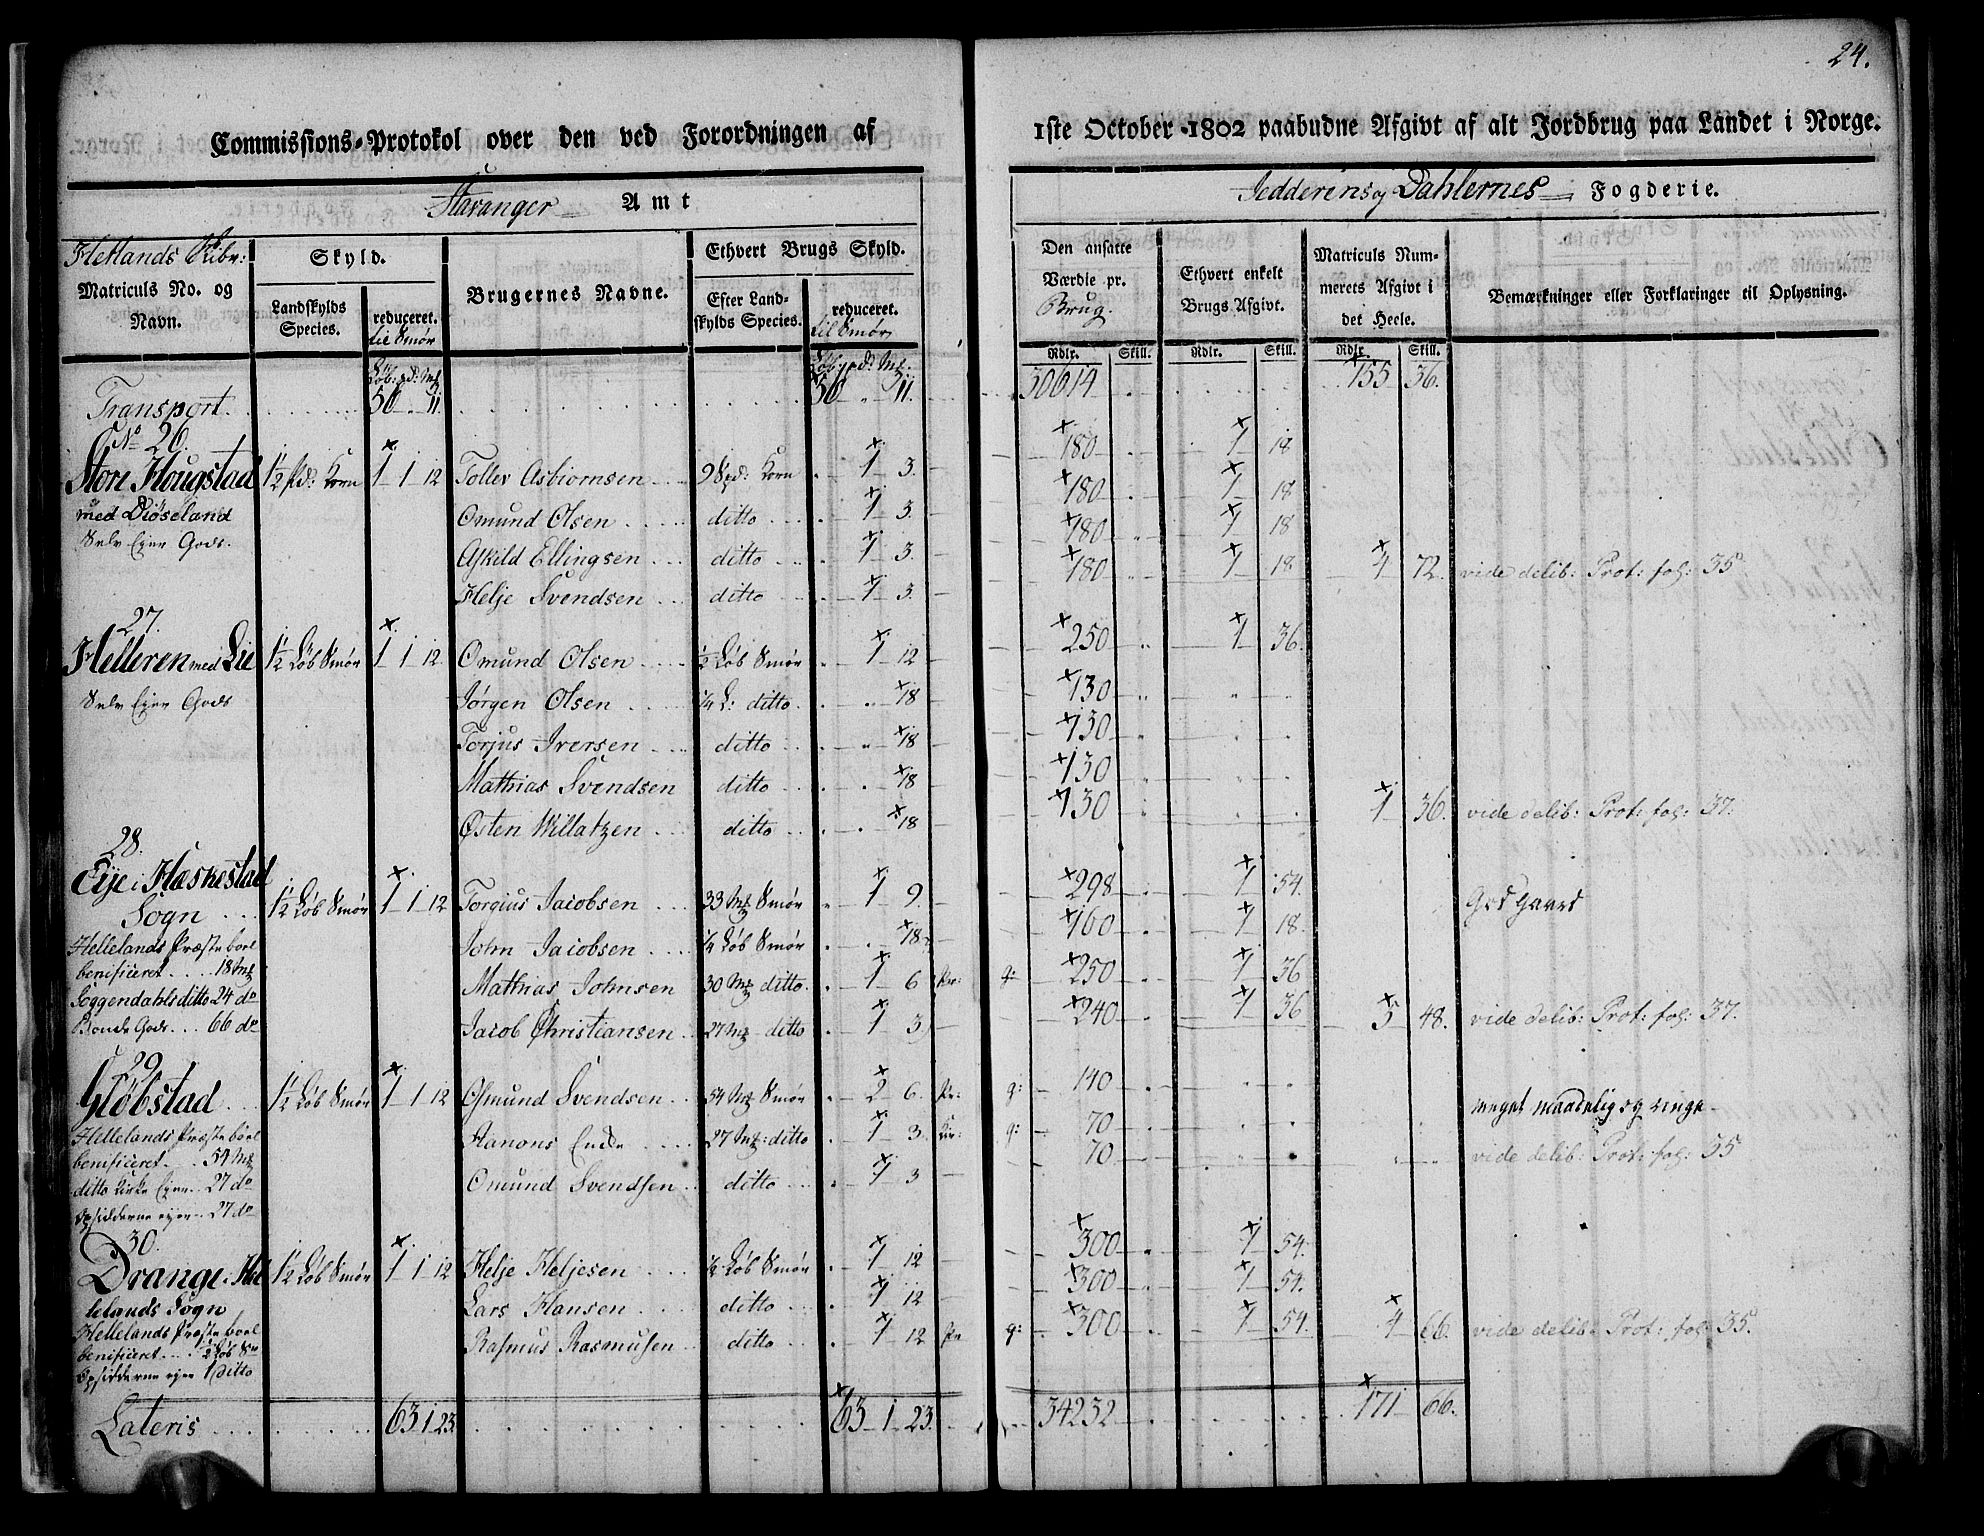 24.
Commissions-Protokol over den ved Forordningen af 1ste October 1802 paabudne Afgivt af alt Jordbrug paa Landet i Norge.
Stavanger Amt
Jedderens og Dahlernes Fogderie.
Hetlands Skibr:
Matriculs No. og Navn.
Skyld.
Landskylds Species.
reduceret. til Smør
Brugernes Navne.
Ethvert Brugs Skyld.
Efter Landskylds Species.
reduceret. til Smør
Den ansatte Værdie pr. Brug.
Ethvert enkelt Brugs Afgivt.
Matriculs Nummerets Afgivt i det Heele.
Bemærkninger eller Forklaringer til Oplysning.
Løb. pd: Mk Løb. pd: Mk: Rdlr. Skill. Rdlr. Skill. Rdlr. Skill.
Transport 56 " 11. 56 " 11. 30614 155 36.
No 26.
Store Hougstad 1½ Pd: Korn 1 1 12 Tollev Asbiornsen 9 Spd: Korn 1 3. 180 1 18
med Diöseland Omund Olsen ditto 1 3. 180 1 18
Selv Eyer Gods. Askild Ellingsen ditto 1 3. 180 1 18
Helje Svendsen ditto 1 3. 180 1 18 4 72. vide delib: Prot: fol: 35
27.
Helleren med Lie 1½ Løb Smør 1 1 12 Omund Olsen ½ Løb Smør 1 12 250 1 36.
Selv Eyer Gods Jørgen Olsen ¼ L: ditto 18 130
Torjus Iversen ditto 18 130
Mathias Svendsen ditto 18 130
Østen Willatzen ditto 18 130 1 36. vide delib: Prot: fol: 37.
28.
Eije i Hæskestad
Sogn 1½ Løb Smør 1 1 12 Torgius Jacobsen 33 Mk Smør 1 9. 298 1 54. God Gaard
Hellelands Præstebol John Jacobsen ¼ Løb Smør 18 160 1 18.
benificeret 18 Mk Mathias Johnsen 30 Mk ditto 1 6 Pr: g: 250 1 36
Soggendahls ditto 24 do
Bonde Gods 66 do Jacob Christiansen 27 Mk ditto 1 3 240 1 36 5 48. vide delib: Prot: fol: 37.
29.
Gløbstad 1½ Løb Smør 1 1 12 Osmund Svendsen 54 Mk Smør 2 6. Pr: g: 140 meget maadelig og ringe
Hellelands Præstebol Hanons Enke 27 Mk: ditto 1 3. Kir: g: 70
benificeret 54 Mk Omund Svendsen ditto 1 3 70 vide delib: Prot: fol: 35
ditto Kirke Eyer 27 do
Opsidderne eyer 27 do
30.
Drange i Hel 1½ Løb Smør 1 1 12 Helje Heljesen ½ Løb Smør 1 12 300 1 54.
lelands Sogn Lars Hansen ditto 1 12 300 1 54.
Hellelands Præstebol Rasmus Rasmusen ditto 1 12 Pr g: 300 1 54. 4 66. vide delib: Prot: fol: 35.
benificeret ½ Løb Sm
Opsidderne eyer 1 ditto
Lateris 63 1 23. 63 1 23. 34232 171 66.